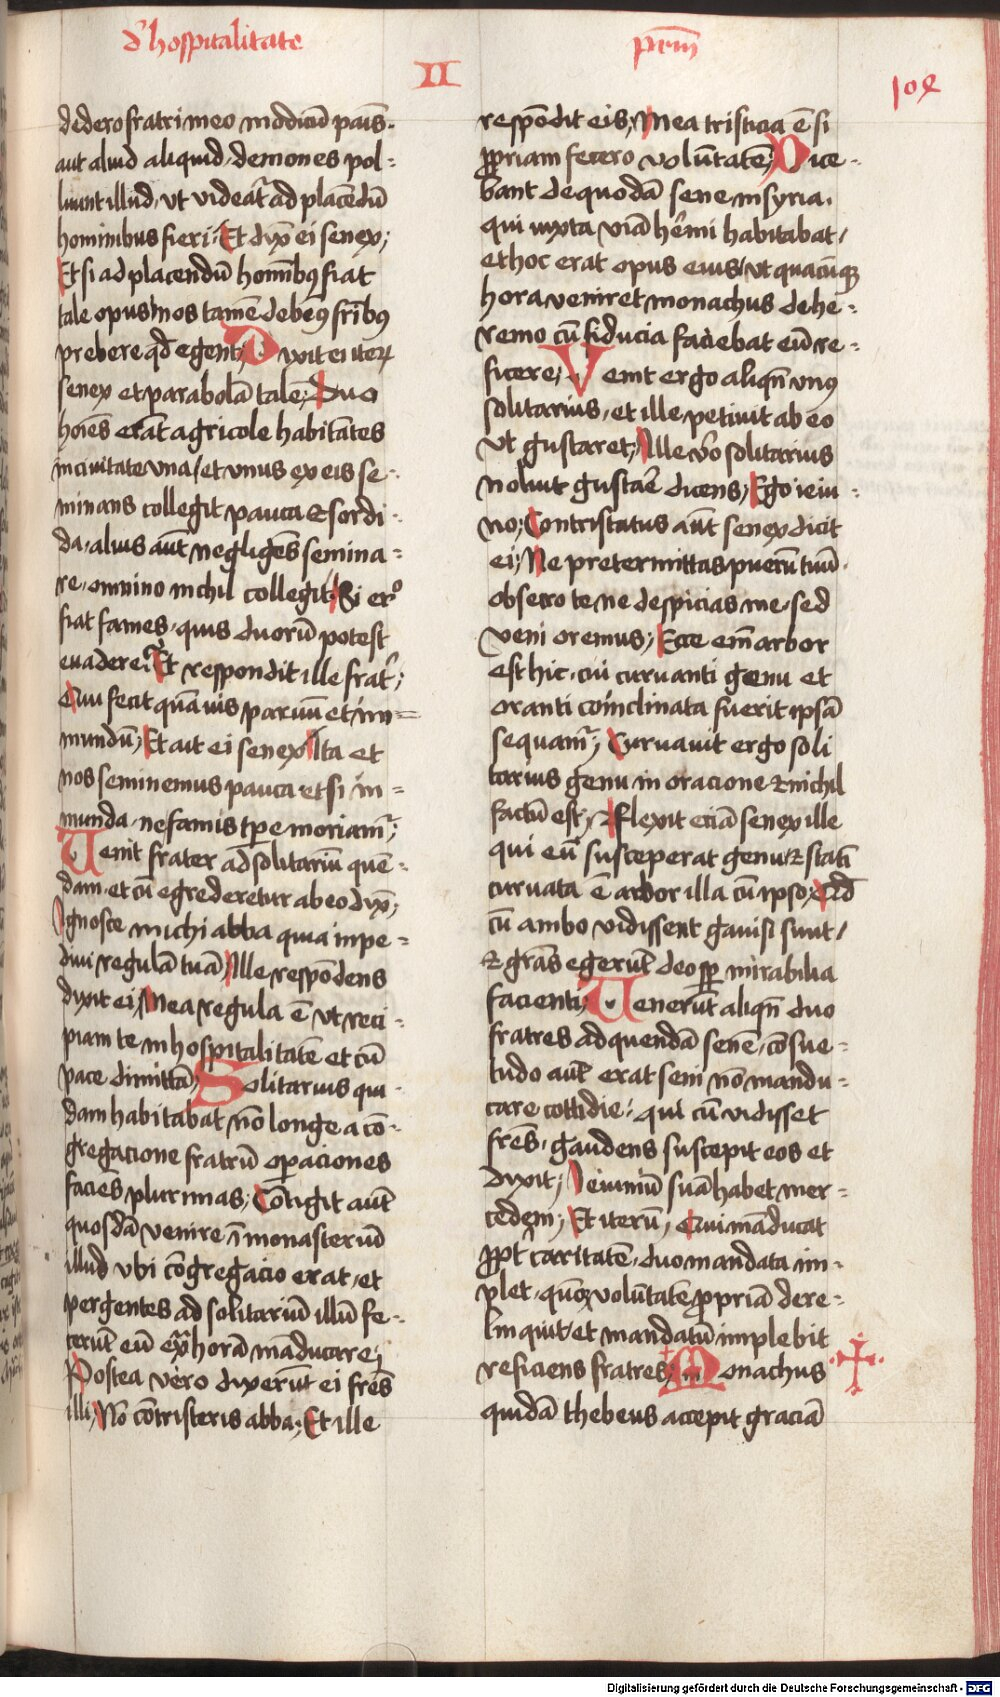 d' hospitalitate
II
prm̄
109
dedero fratri meo modicū panis·
aut aliud aliquid demones pol-
luunt illud, vt videat' ad placēdū
hominibus fieri· Et dixͭ ei senex;
Et si ad placendū homībꝰ fiat
tale opus nos tamē debemꝰ frībꝰ
prebere qd̄ egent; Dixit ei iterꝝ
senex et parabolā talē; Duo
hoīes erāt agricole habitātes
in ciuitate vna / et vnus ex eis se-
minans collegit pauca & sordi-
da, alius aūt negligēs semina-
re, omnino nichil collegit, Si er°
fiat fames, quis duorū potest
euadere? Et respondit ille frat';
Qui fecit quāuis paruū et in-
mundū; Et ait ei senex Ita et
nos seminemus pauca et si in-
munda, ne famis tpe moriam';
Uenit frater ad solitariū quē-
dam, et cū egrederetur ab eo dixͭ;
Ignosce michi abba quia inpe-
diui regulā tuā, Ille respōdens
dixit ei, Mea regula ē vt reci-
piam te in hospitalitatē et cū
pace dimittā; Solitarius qui-
dam habitabat nō longe a cō-
gregacione fratrū opaciones
facies plurimas; Cōtigit aūt
quosdā venire ī monasteriū
illud vbi cōgregacio erat, et
pergentes ad solitariū illū fe-
cerūt eū ex̄ horā māducare;
Postea vero dixerūt ei frēs
illi, Nō cōtristeris abba; Et ille
respōdit eis, Mea tristicia ē si
ꝓpriam fecero volūtatē; Dice-
bant de quodā sene in syria,
qui iuxta viā hēmi habitabat /
et hoc erat opus eius, vt quacūqꝫ
hora veniret monachus de he-
remo cū fiducia faciebat eū re-
ficere; Venit ergo aliqn̄ vnꝰ
solitarius, et ille petiuit ab eo
vt gustaret; Ille v'o solitarius
noluit gustar̄e dicens; Ego ieiu-
no; Contristatus aūt senex dicit
ei; Ne pretermittas puerū tuū,
obsecro te ne despicias me, sed
veni oremus; Ecce em̄ arbor
est hic, cui curuanti genu et
oranti coinclinata fuerit ipsā
sequam'; Curuauit ergo soli
tarius genu in oracione & nichil
factū est; & flexit eciā senex ille
qui eū susceperat genu & statī
curuata ē arbor illa cū ipso; Qid
cū ambo vidissent gauisi sunt /
& gr̄as egerūt deo sp mirabilia
facienti; Uenerūt aliqn̄ duo
fratres ad quendā senē, cōsue-
tudo aūt erat seni nō mandu-
care cottidie; qui cū vidisset
frēs, gaudens suscepit eos et
dixit; Ieiuniū suā habet mer-
cedem; Et iterū, Qui māducat
ꝓpt' caritatē, duo mandata im-
plet, quoꝫ volūtatē ꝓpriā dere-
linquit, et mandatū implebit
reficiens fratres; Monachus
quidā thebeus accepit graciā
Digitalisierung gefördert durch die Deutsche Forschungsgemeinschaft - DFG